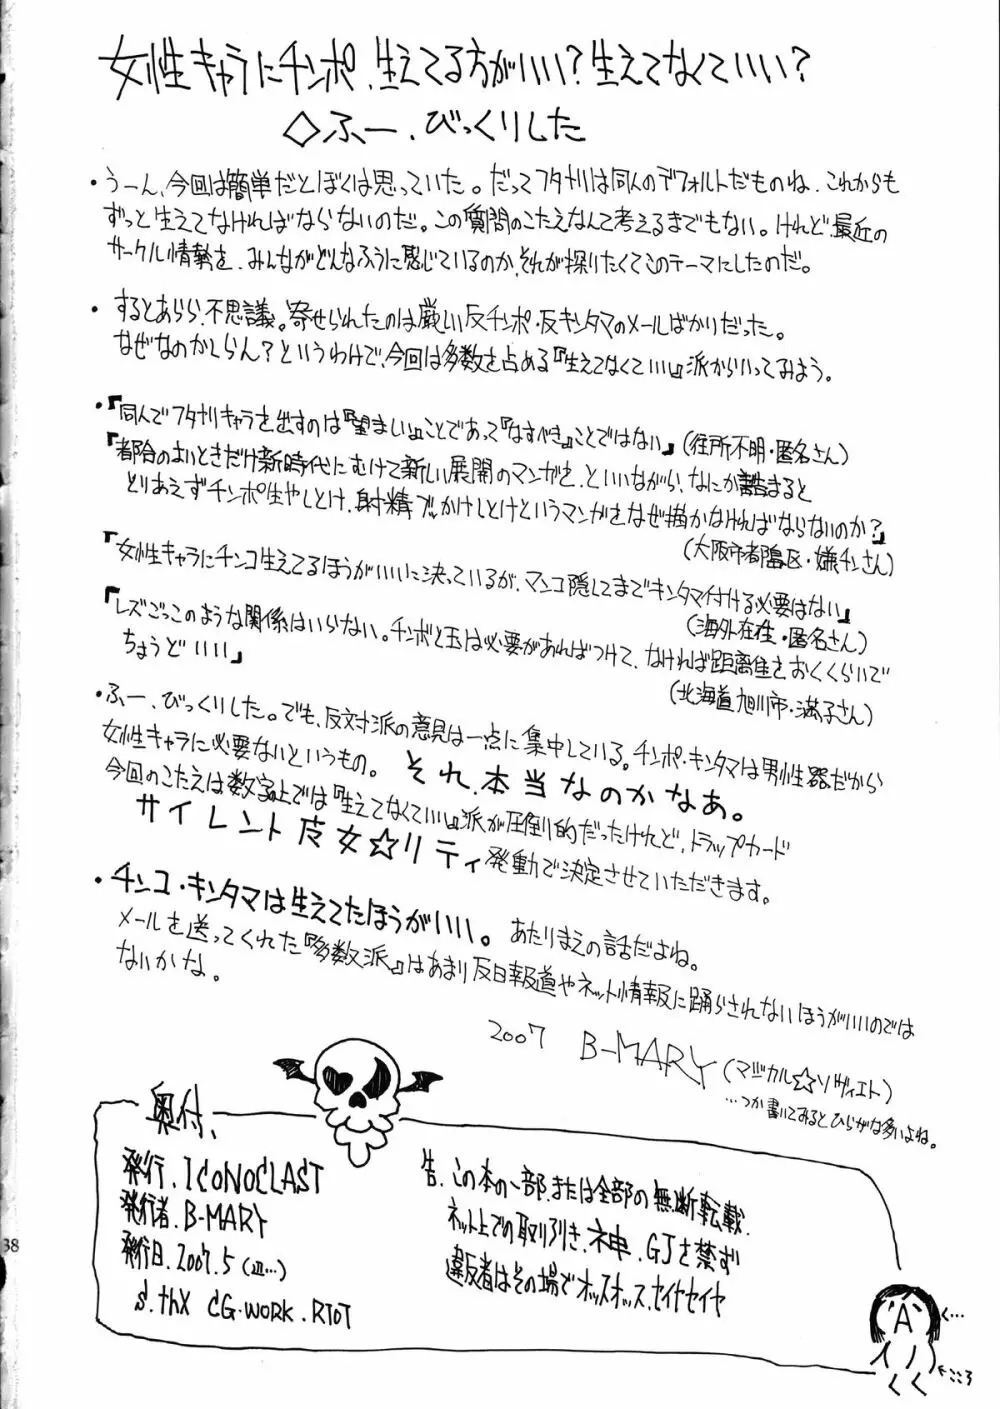 女性キャラにチンポ、生えてる方がいい?生えてなくていい?
◇ふー、びっくりした
・うーん、今回は簡単だとぼくは思っていた。だってフタナリは同人のデフォルトだものね、これからも
ずっと生えてなければならないのだ。この質問のこたえなんて考えるまでもない。けれど、最近の
サークル情勢を、みんながどんなふうに感じているのか、それが探りたくてこのテーマにしたのだ。
・するとあらら、不思議。寄せられたのは厳しい反チンポ・反キンタマのメールばかりだった。
なぜなのかしらん?というわけで、今回は多数を占める『生えてなくていい』派からいってみよう。
・『同人でフタナリキャラを出すのは『望ましい』ことであって『なすべき』ことではない』(住所不明・匿名さん)
『都合のよいときだけ新時代にむけて新しい展開のマンガを、といいながら、なにか詰まると
とりあえずチンポ生やしとけ、射精でぶっかけしとけというマンガをなぜ描かなければならないのか?』
(大阪市都島区・嫌チンさん)
『女性キャラにチンコ生えてるほうがいいに決っているが、マンコ隠してまでキンタマ付ける必要はない』
(海外在住・匿名さん)
『レズごっこのような関係はいらない。チンポと玉は必要があればつけて、なければ距離をおくくらいで
ちょうどいい』
(北海道旭川市・満子さん)
・ふー、びっくりした。でも、反対派の意見は一点に集中している。チンポ・キンタマは男性器だから
女性キャラに必要ないというもの。それ、本当なのかなあ。
今回のこたえは数字上では『生えてなくていい』派が圧倒的だったけれど、トラップカード
サイレント皮女☆リティ発動で決定させていただきます。
・チンコ・キンタマは生えてたほうがいい。あたりまえの話だよね。
メールを送ってくれた『多数派』はあまり反日報道やネット情報に踊らされないほうがいいのでは
ないかな。
2007 B-MARY(マジカル☆ソヴィエト)
…つか書いてみるとひらがな多いよね。
奥付、
発行.ICONOCLAST
発行者.B-MARY
発行日.2007.5
S.thX CG-WORK.RIOT
告.この本の一部、または全部の無断転載.
ネット上での取り引き、神、GJを禁ず
違反者はその場でオッスオッス、セイヤセイヤ
A
く…
←こころ
38